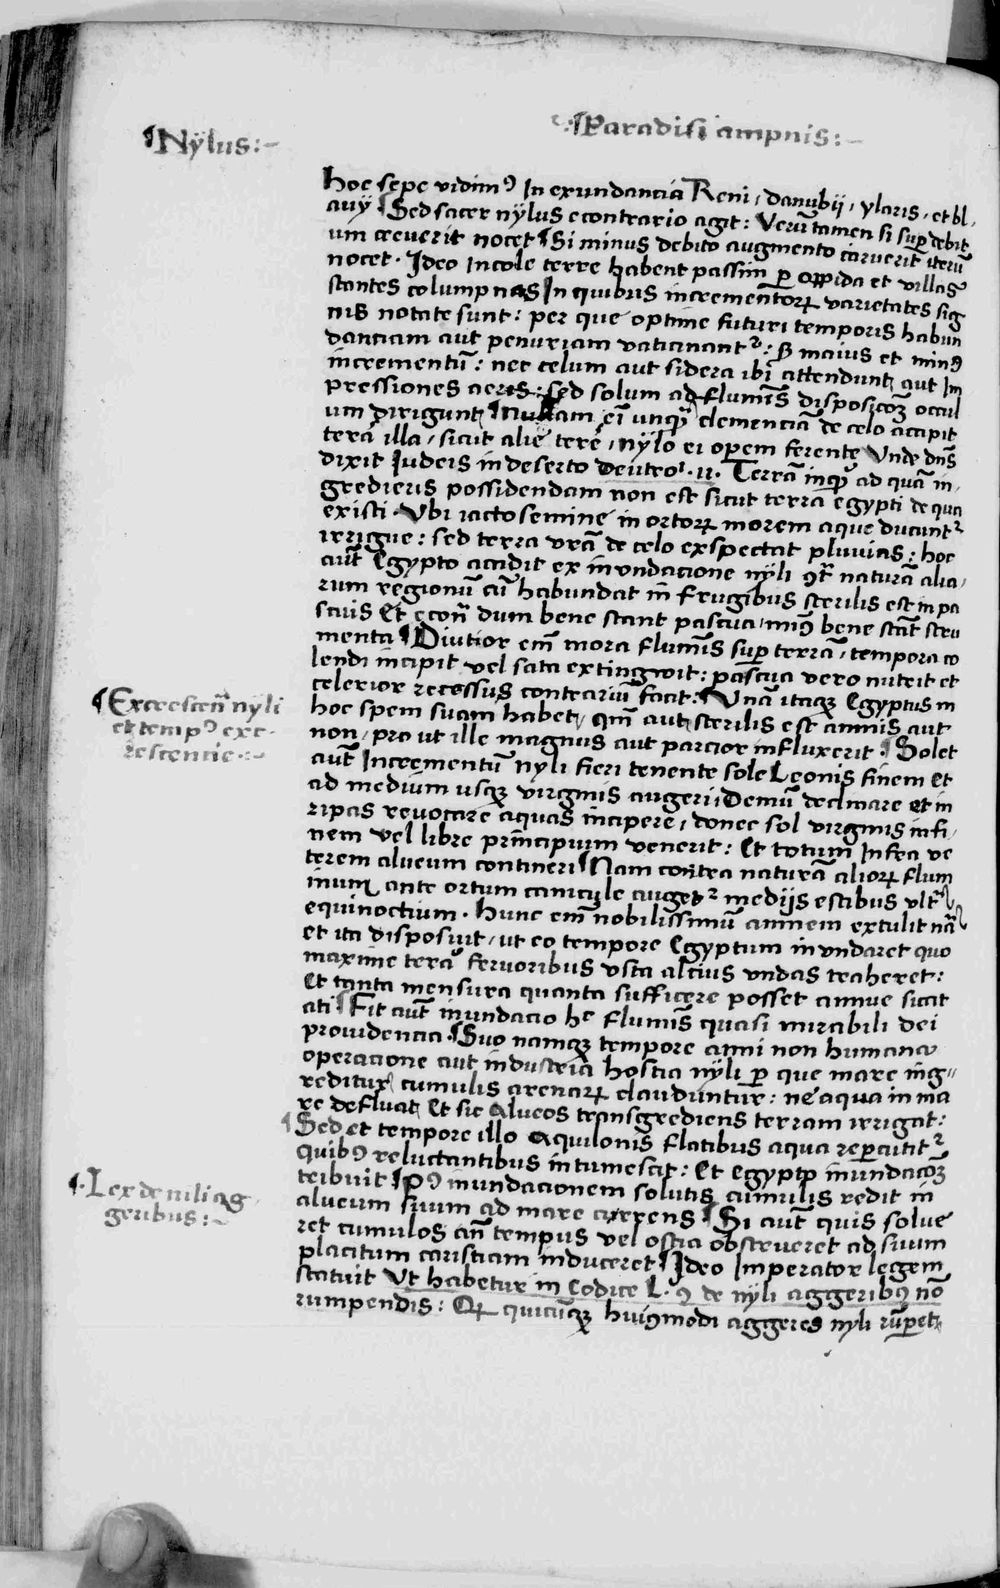 ¶Nÿlus:~
¶Paradisi ampnis:~
hoc sepe vidimꝰ In exundancia Reni, danubÿ, ylaris, et bl,
auÿ ¶Sed sacer nÿlus econtrario agit: Verūtamen si suꝑ debit
um creuerit nocet ¶Si minus debito augmento caruerit iterū
nocet. Ideo Incole terre habent passim ꝑ oꝑida et villas
stantes columpnas In quibus incrementoꝝ varietates sig
nis notate sunt: per que optime futuri temporis habun
danciam aut penuriam vaticinant᷑: maius et minꝰ
incrementū: nec celum aut sidera ibi attendunt, aut Im
pressiones aeris: sed solum ad flumīs disposicōꝫ occul
um dirigunt ¶Nullam eī unqᷓ clemenciā de celo accipit
terā illa, sicut alie tere, nÿlo ei oꝑem ferente Vnde dn̄s
dixit Iudeis in deserto deuteoͥ. 11. Terrā inqͥ ad quā in,
grederis possidendam non est sicut terra egypti de qua
existi. Vbi iacto semine in ortoꝝ morem aque ducunt᷑
irrigue: sed terra vrā de celo exspectat pluuias: hoc
aūt Egypto accidit ex inundacione nÿli ꝯᷓ naturā alia,
rum regionū cū habundat in frugibus sterilis est in pa
scuis Et econ̄ dum bene stant pascua, minꝰ bene stāt fru
menta ¶Diutior em̄ mora flumīs suꝑ terrā, tempora co
lendi incipit vel sata extingwit: pascua vero nutrit et
celerior recessus contrariū facit: Vnā itaqꝫ Egyptus in
hoc spem suam habet, qm̄ aut sterilis est annis aut
non, pro ut ille magnus aut parcior influxerit ¶Solet
aūt Incrementū nÿli fieri tenente sole Leonis finem et
ad medium usqꝫ virginis augeri, Demū declinare et in
ripas reuocare aquas incipere, donec sol virginis infi,
nem vel libre principium venerit: Et totum Infra ve
terem alueum contineri ¶Nam contra naturā alioꝝ flum
inum ante ortum canicule auget᷑ medijs estibus vltᷓ
equinoctium. Hunc em̄ nobilissimū amnem extulit nāᷓ
et ita disposuit, ut eo tempore Egyptum inundaret quo
maxime terā feruoribus vsta alcius vndas traheret:
Et tanta mensura quanta sufficere posset annue sicit
ati ¶Fit aūt inundacio hͨ flumīs quasi mirabili dei
prouidencia. ¶Suo namqꝫ tempore anni non humana
operacione aut industria hostia nÿli ꝑ que mare ing=
reditur, cumulis arenaꝝ clauduntur: ne aqua in ma
re defluat, Et sic alueos transgrediens terram irrigat:
¶Sed et tempore illo aquilonis flatibus aqua reꝑcutit᷑
quibꝰ reluctantibus intumescit: Et egyptꝫ inundacōꝫ
tribuit ¶Pꝰ inundacionem solutis cumulis redit in
alueum suum ad mare currens ¶Si aūt quis solue
ret cumulos an̄ tempus vel ostia obstrueret ad suum
placitum caristiam induceret ¶Ideo Imperator legem
statuit Ut habetur in Codice L. ꝯ de nÿli aggeribꝰ nō
rumpendis: Qꝫ quicūqꝫ huiꝰmodi aggeres nÿli rūperet,
¶Excrescen̄ nyli
et tempꝰ exc-
rescentie.~
¶.Lex de nili ag
geribus:~